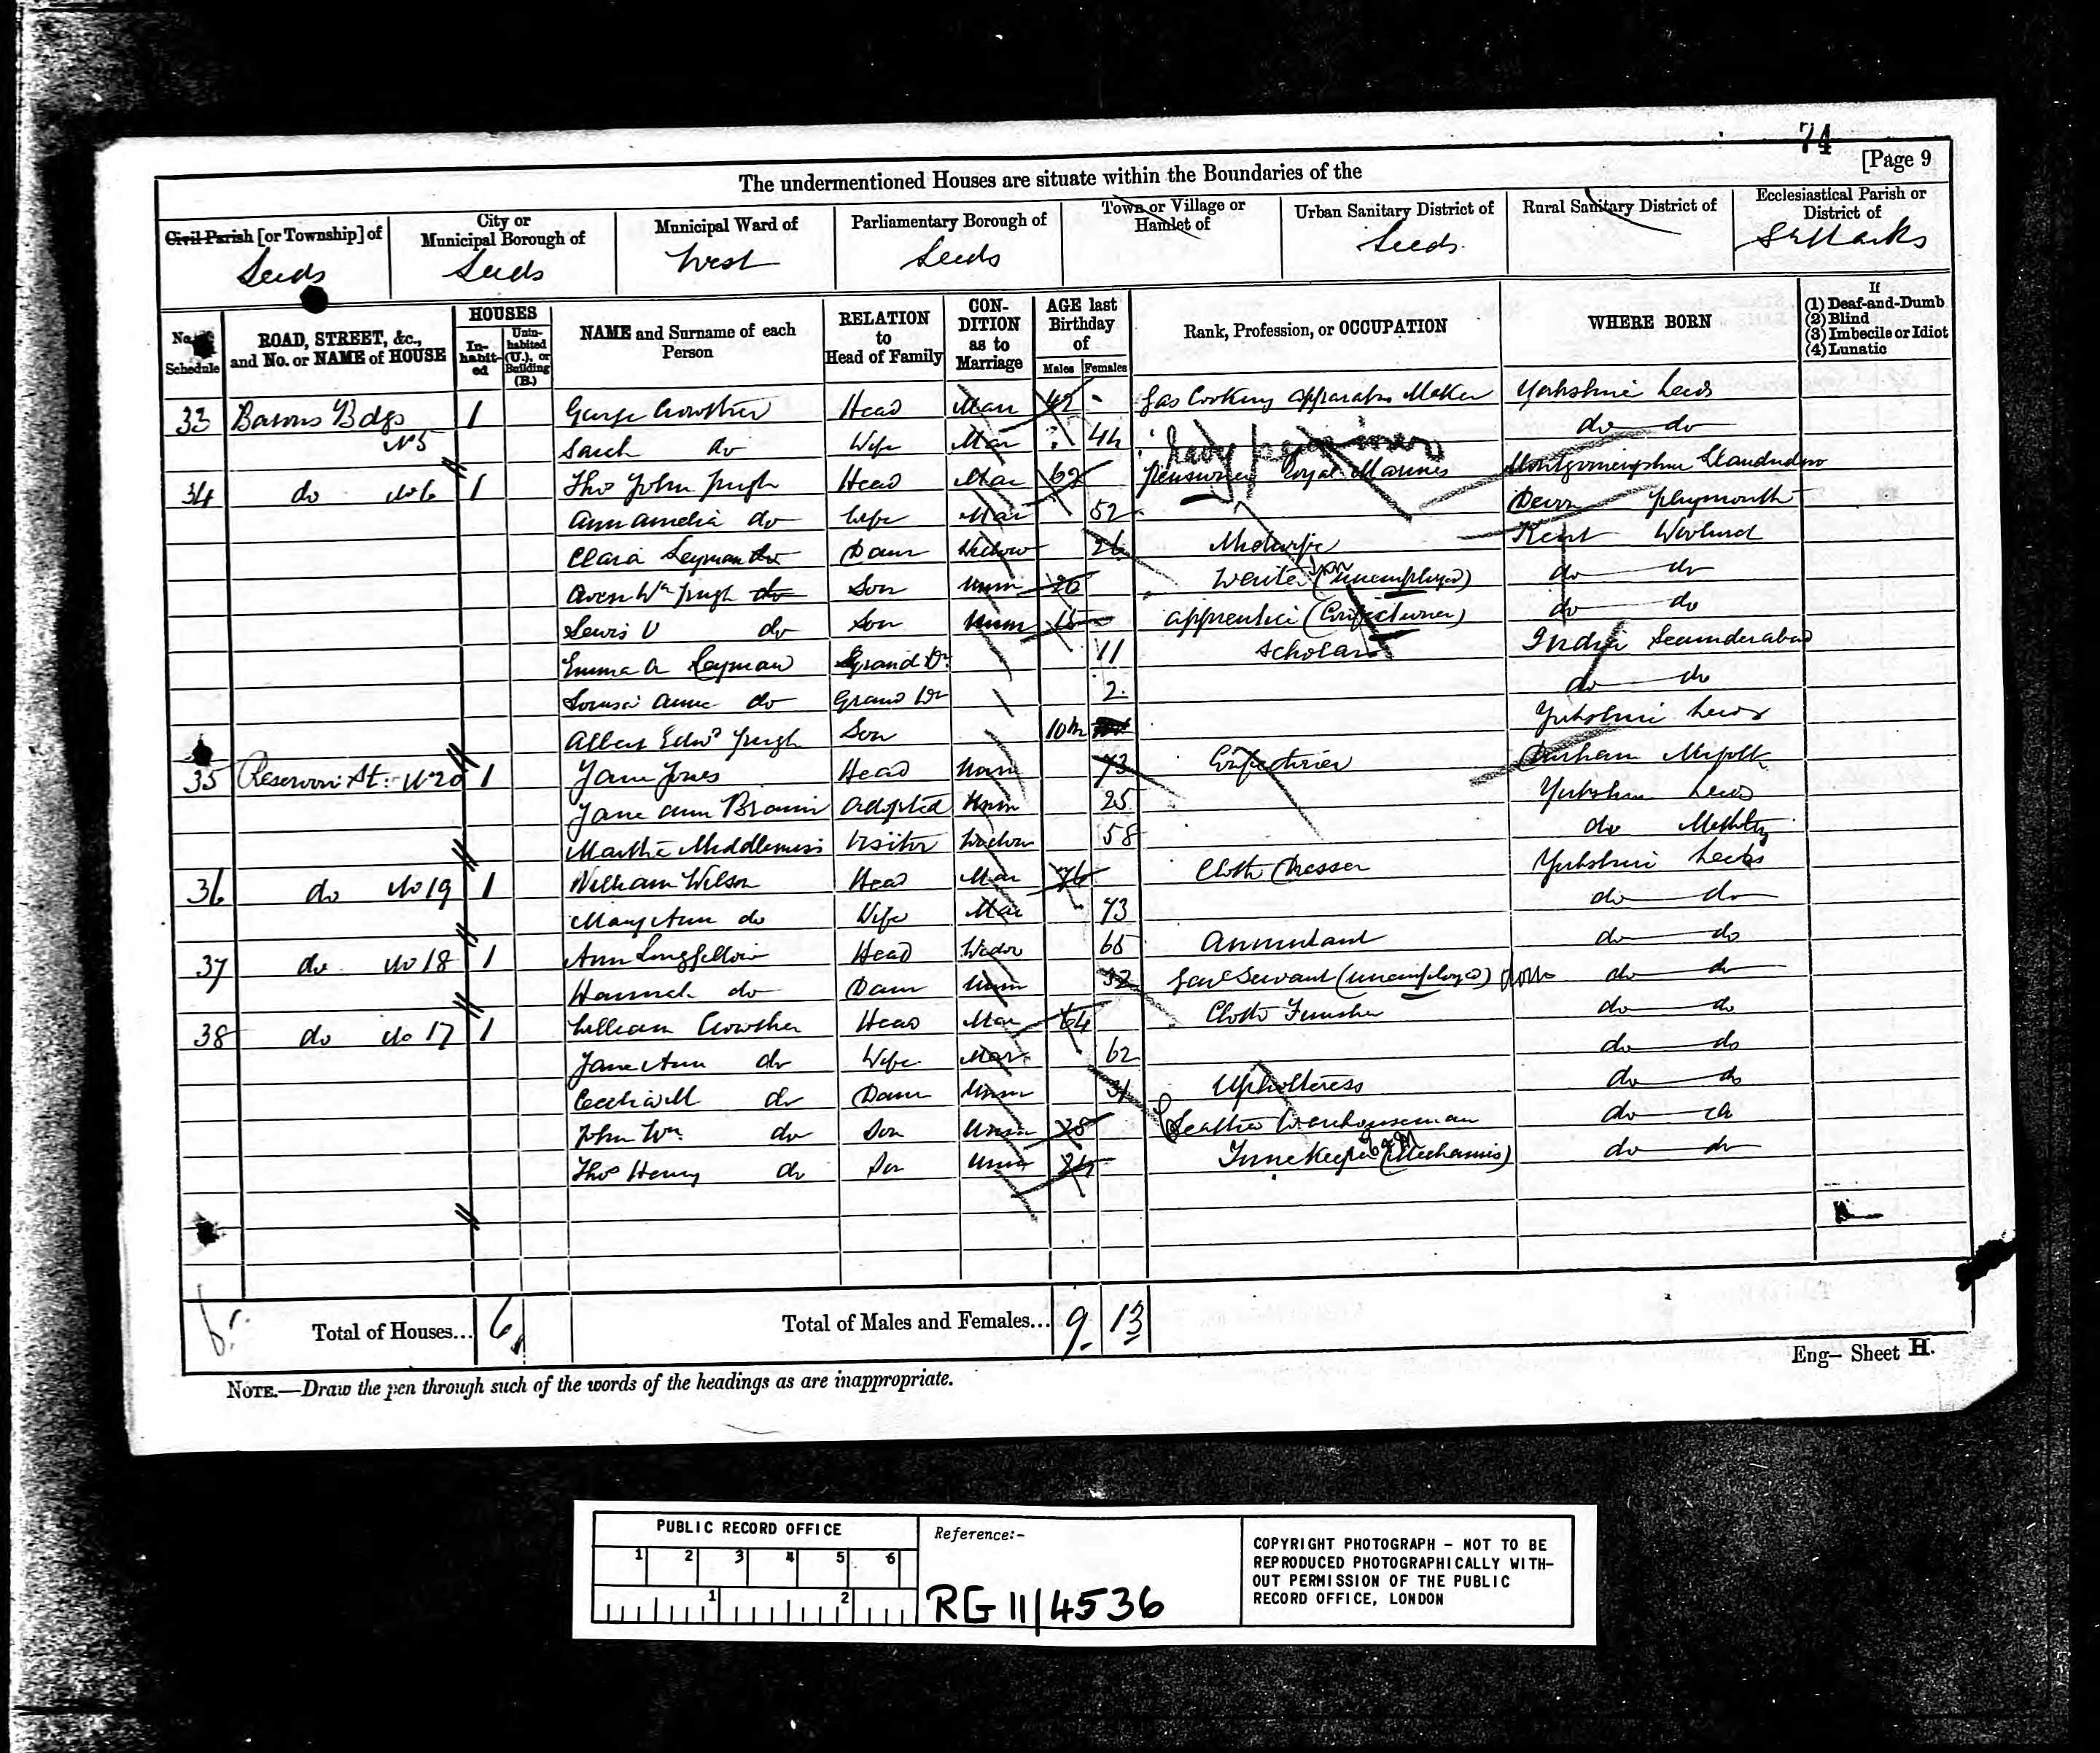 74
[Page 9
The undermentioned Houses are situate within the Boundaries of the
Civil Parish [or Township] of
Leeds
City or Municipal Borough of
Leeds
Municipal Ward of
West
Parliamentary Borough of
Leeds
Town or Village or Hamlet of
Urban Sanitary District of
Leeds
Rural Sanitary District of
Ecclesiastical Parish or District of
St Marks
No. Schedule
ROAD, STREET, &c., and No. or NAME of HOUSE
HOUSES
In-habit-ed
Unin-habited (U.), or Building (B.)
NAME and Surname of each Person
RELATION to Head of Family
CON-DITION as to Marriage
AGE last Birthday of
Males Females
Rank, Profession, or OCCUPATION
WHERE BORN
If
(1) Deaf-and-Dumb
(2) Blind
(3) Imbecile or Idiot
(4) Lunatic
33 Bdgs No 5 1 George Crowther Head Mar 42 Gas Cooking apparatus Maker Yorkshire Leeds
Sarah do Wife Mar 44 do do
34 do No 6 1 Thos John Pugh Head Mar 62 Pensioner Royal Marines Montgomeryshire
Ann Amelia do Wife Mar 52 Devon Plymouth
Clara Leyman do Daur Widow 26 Midwife Kent
Owen Wm Pugh do Son Unm 20 Writer (Unemployed) do do
Lewis V do Son Unm 15 apprentice (Confectioner) do do
Emma A Leyman Grand Dr 11 Scholar India Secunderabad
Louisa Annie do Grand Dr 2 do do
Albert Edwd Pugh Son 10m Yorkshire Leeds
35 Reservoir St: No 20 1 Jane Jones Head Unm 73 Confectioner Norfolk
Jane Ann Adopted Unm 25 Yorkshire Leeds
Martha Middlemiss Visitor Widow 58 do Methley
36 do No 19 1 William Wilson Head Mar 76 Cloth Dresser Yorkshire Leeds
Mary Ann do Wife Mar 73 do do
37 do No 18 1 Ann Longfellow Head Widow 65 Annuitant do do
Hannah do Daur Unm 32 Genl Servant (Unemployed) Dom do do
38 do No 17 1 William Crowther Head Mar 64 Cloth Finisher do do
Jane Ann do Wife Mar 62 do do
Cecelia M do Daur Unm 31 Upholstress do do
John Wm do Son Unm 28 Leather Warehouseman do do
Thos Henry do Son Unm 24 Time Keeper (Mechanics) do do
Total of Houses... 6
Total of Males and Females... 9 13
Eng— Sheet H.
NOTE.—Draw the pen through such of the words of the headings as are inappropriate.
PUBLIC RECORD OFFICE
1 2 3 4 5 6
1 2
Reference:-
RG 11/4536
COPYRIGHT PHOTOGRAPH - NOT TO BE
REPRODUCED PHOTOGRAPHICALLY WITH-
OUT PERMISSION OF THE PUBLIC
RECORD OFFICE, LONDON